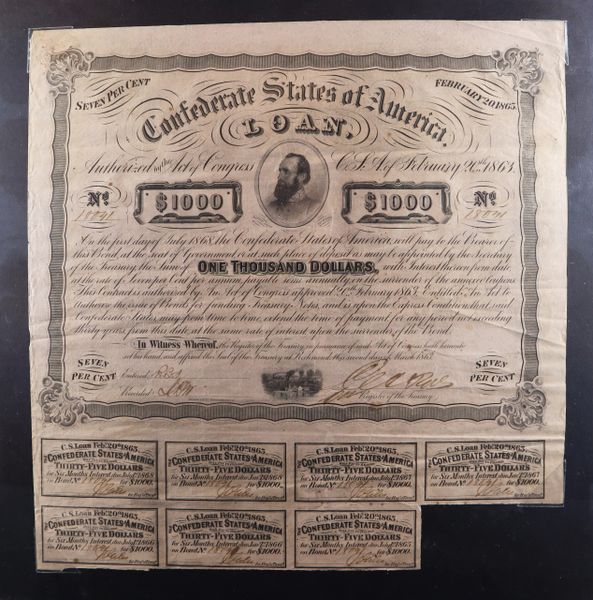 SEVEN PER CENT
FEBRUARY 20 1863.
Confederate States of America.
LOAN,
Authorized by the Act of Congress C.S.A. of February 20th 1863.
No
$1000
$1000
No
On the first day of July 1868, the Confederate States of America, will pay to the Bearer of
this Bond, at the seat of Government or at such place of deposit as may be appointed by the Secretary
of the Treasury, the Sum of ONE THOUSAND DOLLARS, with Interest thereon from date
at the rate of Seven per Cent per annum, payable semi annually on the surrender of the annexed Coupons
This Contract is authorized by An Act of Congress approved 1863, Entitled, An Act to
authorize the issue of Bonds, for funding Treasury Notes, and is upon the Express Condition that said
Confederate States, may from time to time, extend the time of payment, for any period not exceeding
thirty years from this date, at the same rate of interest upon the surrender of this Bond.
In Witness Whereof, the Register of the Treasury in pursuance of said Act of Congress hath hereunto
set his hand, and affixed the Seal of the Treasury at Richmond this second day of March 1863.
SEVEN PER CENT
Entered
Recorded
Register of the Treasury
SEVEN PER CENT
C.S. Loan Feby. 20th 1863.
THE CONFEDERATE STATES OF AMERICA
THIRTY-FIVE DOLLARS
for Six Months Interest due July 1st 1868
on Bond No for $1000.
C.S. Loan Feby. 20th 1863.
THE CONFEDERATE STATES OF AMERICA
THIRTY-FIVE DOLLARS
for Six Months Interest due Jany 1st 1868
on Bond No for $1000.
C.S. Loan Feby. 20th 1863.
THE CONFEDERATE STATES OF AMERICA
THIRTY-FIVE DOLLARS
for Six Months Interest due July 1st 1867
on Bond No for $1000.
C.S. Loan Feby. 20th 1863.
THE CONFEDERATE STATES OF AMERICA
THIRTY-FIVE DOLLARS
for Six Months Interest due Jany 1st 1867
on Bond No for $1000.
C.S. Loan Feby. 20th 1863.
THE CONFEDERATE STATES OF AMERICA
THIRTY-FIVE DOLLARS
for Six Months Interest due July 1st 1866
on Bond No for $1000.
C.S. Loan Feby. 20th 1863.
THE CONFEDERATE STATES OF AMERICA
THIRTY-FIVE DOLLARS
for Six Months Interest due Jany 1st 1866
on Bond No for $1000.
C.S. Loan Feby. 20th 1863.
THE CONFEDERATE STATES OF AMERICA
THIRTY-FIVE DOLLARS
for Six Months Interest due July 1st 1865
on Bond No for $1000.